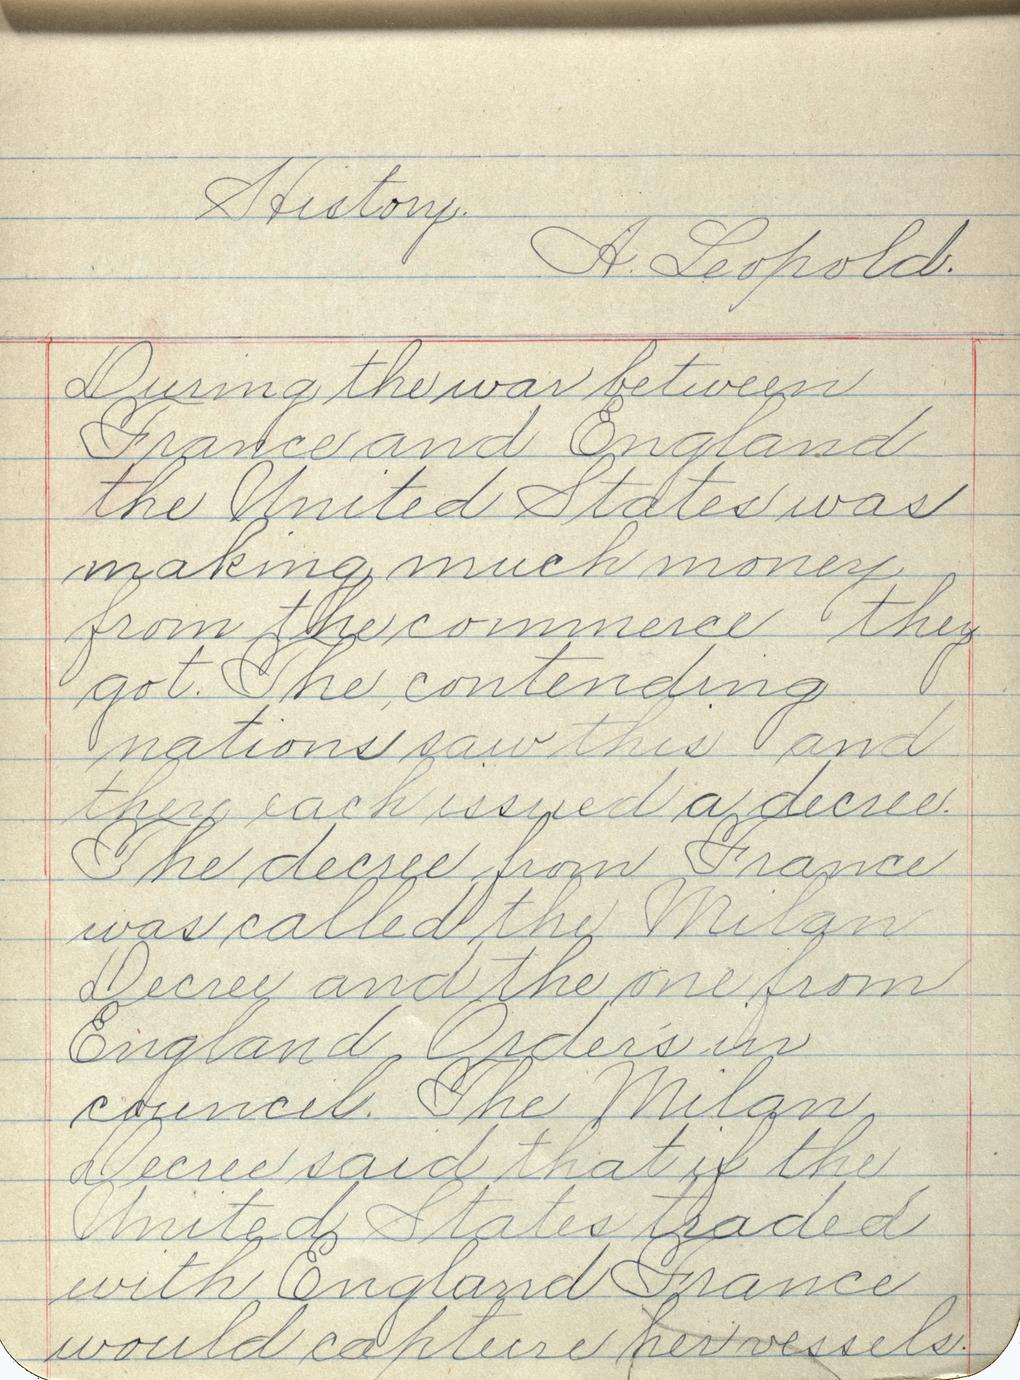 History.
A. Leopold.
During the war between
France and England
the United States was
making much money
from the commerce they
got. The contending
nations saw this and
they each issued a decree.
The decree from France
was called the Milan
Decree and the one from
England Orders in
council. The Milan
Decree said that if the
United States traded
with England France
would capture her vessels.